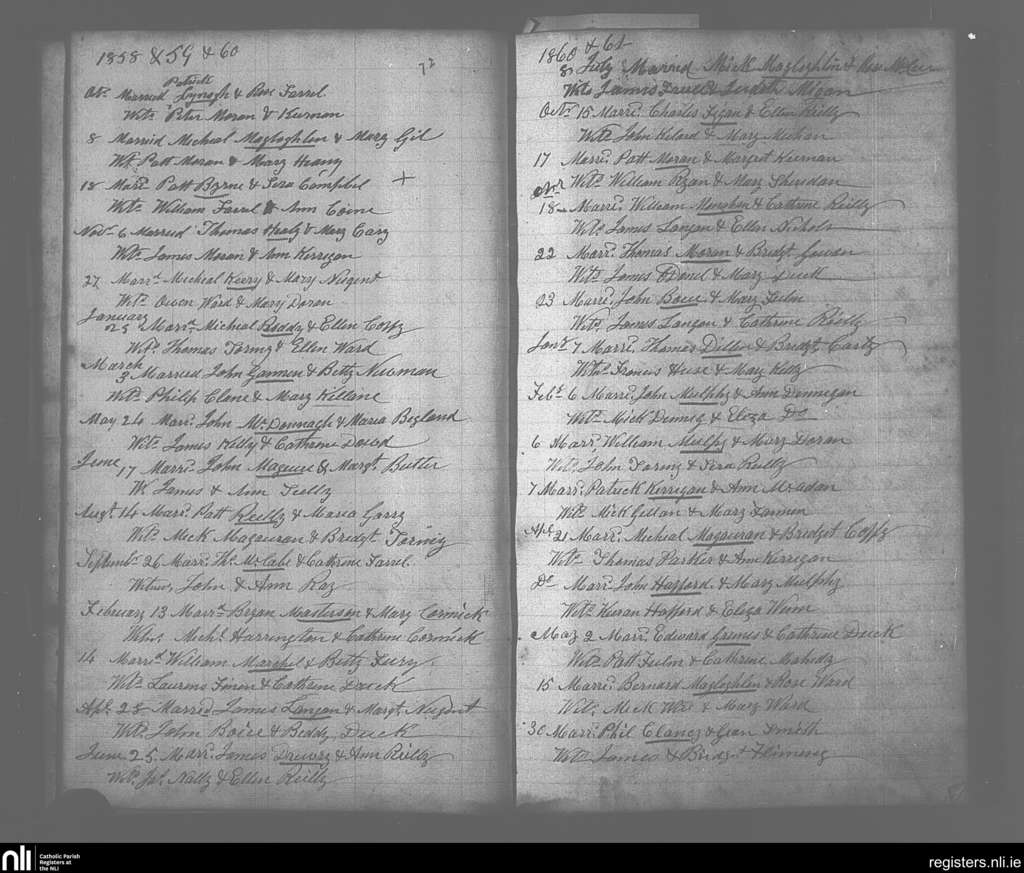 1858 & 59 & 60
72
Patrick
Octr Married Lynogh & Rose Farrel
Wits Peter Moran & Kiernan
8 Married Micheal Magloghlin & Mary Gil
Wit Patt Moran & Mary Heany
18 Marr. Patt Byrne & Sera Campbel +
Wits William Farrel & Ann Coine
Novr 6 Married Thomas Healy & Mary Cary
Wits James Moran & Ann Kerrigan
27 Marrd Micheal Keery & Mary Nugent
Wits Owen Ward & Mary Doran
January
25 Marrd Micheal Roddy & Ellen Coffy
Wits Thomas Torny & Ellen Ward
March
3 Married John Gannon & Betty Newman
Wits Philip Clane & Mary Killane
May 24 Marr. John McDonnagh & Maria Begland
Wits James Kelly & Cathrine Dowd
June 17 Marrd John Maguire & Margt Butler
W James & Ann Tully
Augt 14 Marrd Patt Reilly & Maria Garry
Wits Mick Magauran & Bridgt Torniy
Septembr 26 Marrd Ths McCabe & Cathrine Farrel
Witns John & Ann Ray
February 13 Marrd Bryan Masterson & Mary Cormick
Wits Mehl Harrington & Cathrine Cormick
14 Marrd William Marshel & Betty Fury
Wits Laurens Simon & Cathrine Duck
Apl 28 Married James Langan & Margt Nugent
Wits John Boice & Biddy Duck
June 25 Marrd James & Ann Reilly
Wits Js Nally & Ellen Reilly
1860 & 61
8 July Married Mick Magloghlin & Rose
Wits James Farrel & Judith
Octr 15 Marrd Charles Figan & Ellen Reilly
Wits John & Mary Meehan
17 Marrd Patt Moran & Margret Kiernan
Wits William Ryan & Mary Sheridan
Novr
18 Marrd William Monahan & Cathrine Reilly
Wits James Langan & Ellen Nichols
22 Marrd Thomas Moran & Bridgt
Wits James & Mary Duck
23 Marrd John Boice & Mary
Wits James Langan & Cathrine Reilly
Janr 7 Marrd Thomas Dillon & Bridgt Carty
Wits Francis & Mary Kelly
Feb 6 Marrd John Mulphy & Ann Donnegan
Wits Mick & Eliza Do
6 Marrd William Mulphy & Mary Doran
Wits John Torny & Sera Reilly
7 Marrd Patrick Kerrigan & Ann McAdan
Wits Mick Gillan & Mary Gannon
Apl 21 Marrd Micheal Magauran & Bridget Coffy
Wits Thomas Parker & Ann Kerrigan
Do Marrd John Hafford & Mary Mulphy
Wits Kieran Hafford & Eliza
May 2 Marrd Edward Grimes & Cathrine Duck
Wits Patt & Cathrine
15 Marrd Bernard Magloghlin & Rose Ward
Wits Mick & Mary Ward
30 Marrd Phil Clancy & Jean Smith
Wits James & Bridgt Fleming
nli Catholic Parish
Registers at
the NLI
registers.nli.ie